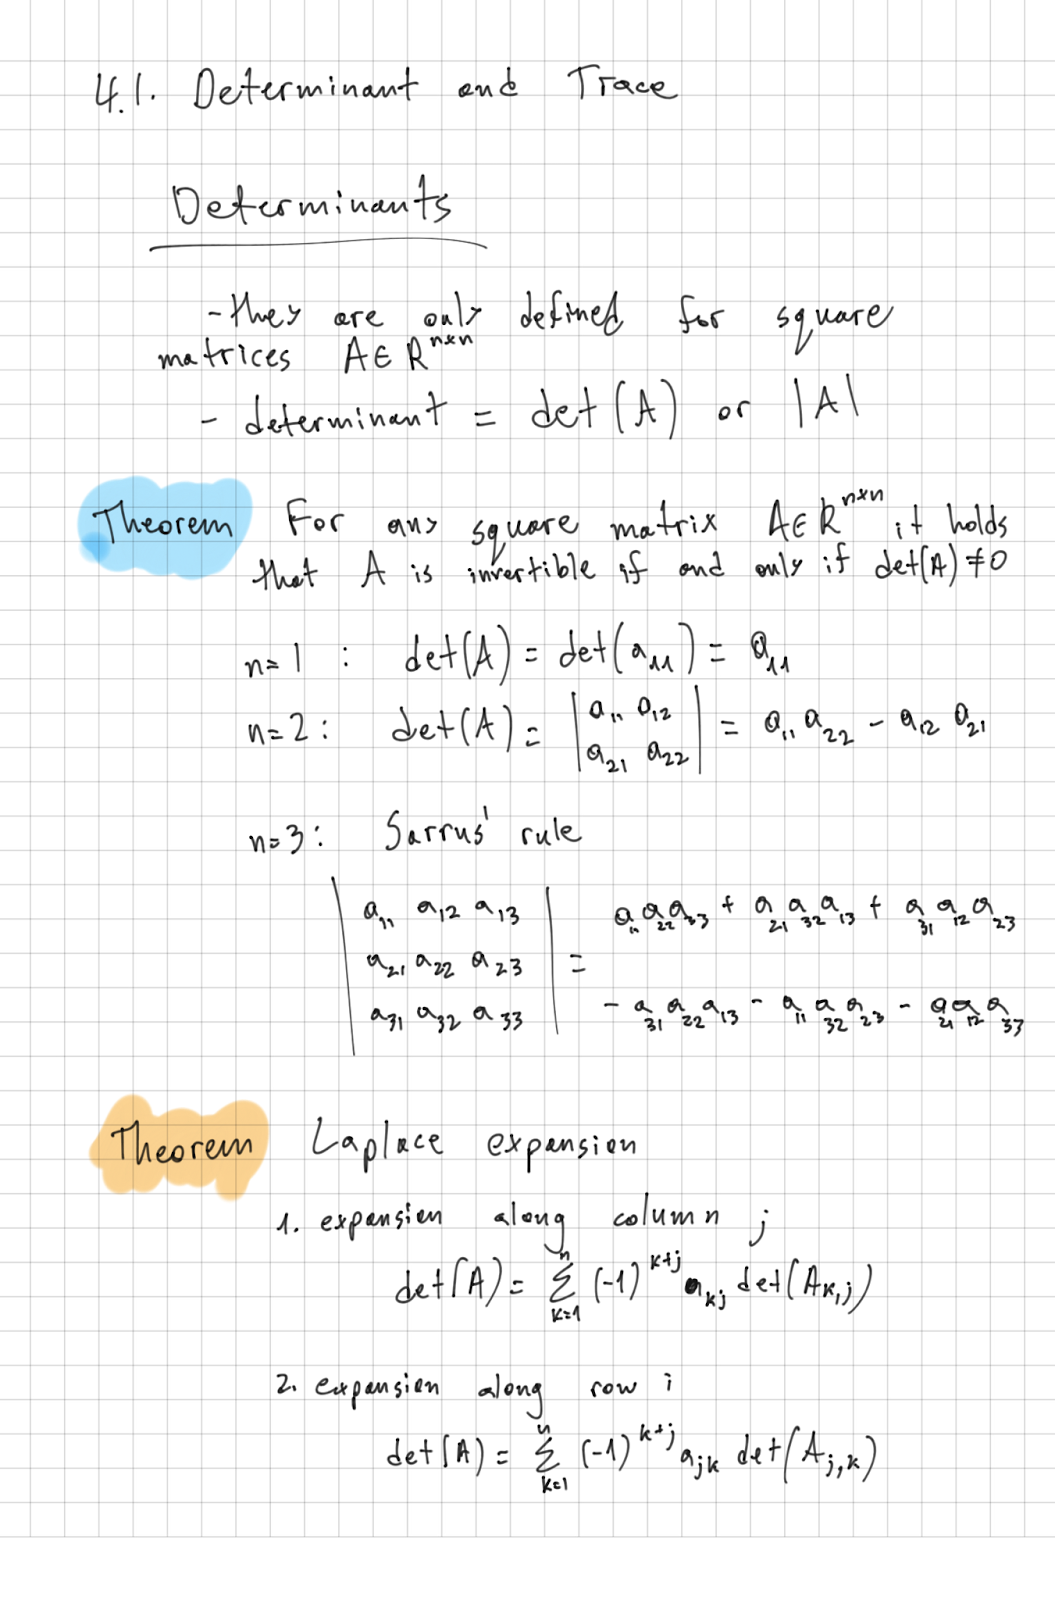 4.1. Determinant and Trace
Determinants
- they are only defined for square
matrices A∈R^{n×n}
- determinant = det(A) or |A|
Theorem For any square matrix A∈R^{n×n} it holds
that A is invertible if and only if det(A)≠0
n=1 : det(A) = det(a_{11}) = a_{11}
n=2: det(A) = | a_{11} a_{12} | = a_{11} a_{22} - a_{12} a_{21}
| a_{21} a_{22} |
n=3: Sarrus' rule
| a_{11} a_{12} a_{13} | a_{11} a_{22} a_{33} + a_{21} a_{32} a_{13} + a_{31} a_{12} a_{23}
| a_{21} a_{22} a_{23} | =
| a_{31} a_{32} a_{33} | - a_{31} a_{22} a_{13} - a_{11} a_{32} a_{23} - a_{21} a_{12} a_{33}
Theorem Laplace expansion
1. expansion along column j
det(A) = ∑_{k=1}^{n} (-1)^{k+j} a_{kj} det(A_{k,j})
2. expansion along row i
det(A) = ∑_{k=1}^{n} (-1)^{k+j} a_{jk} det(A_{j,k})